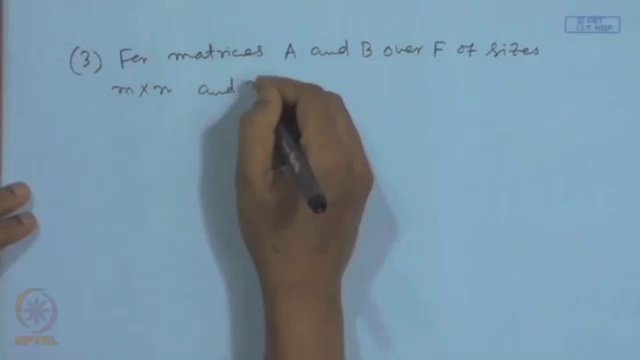 © CET
I.I.T. KGP
(3) For matrices A and B over F of sizes
m×n and
NPTEL